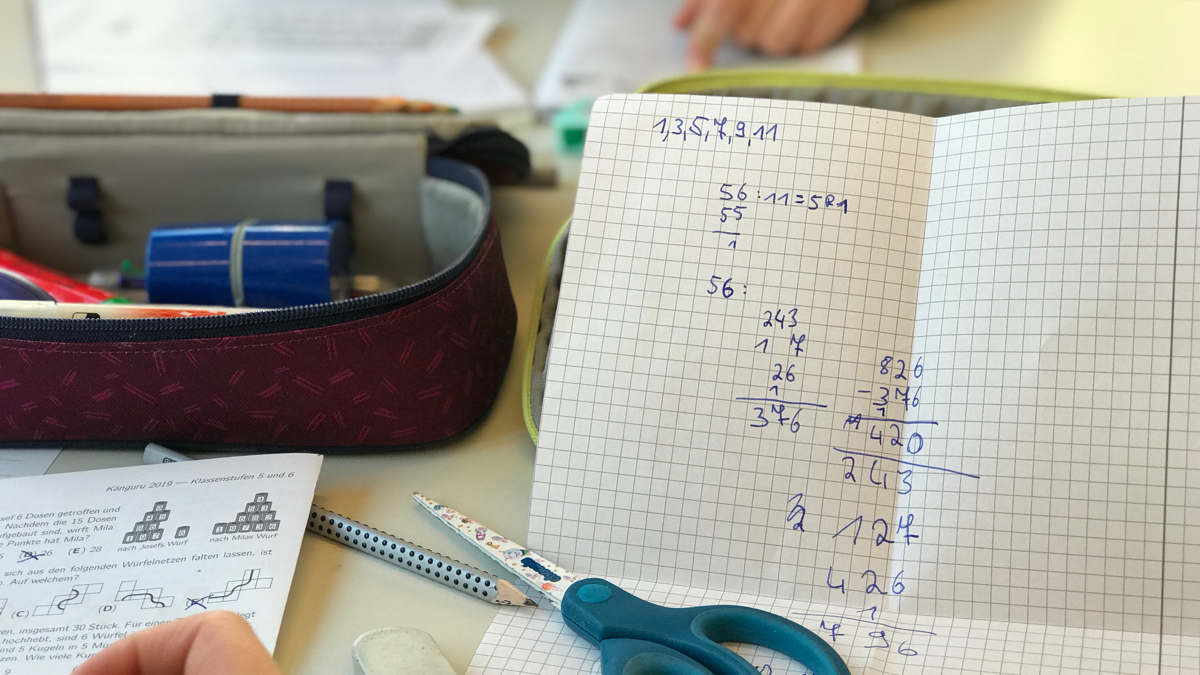 1,3,5,7,9,11
56:11=5R1
55
1
56:
243
1 7
26
1
376
826
-376
1
420
243
127
426
1
796
Känguru 2019 — Klassenstufen 5 und 6
sef 6 Dosen getroffen und
Nachdem die 15 Dosen
fgebaut sind, wirft Mila
e Punkte hat Mila?
nach Josefs Wurf
nach Milas Wurf
26 (E) 28
sich aus den folgenden Würfelnetzen falten lassen, ist
. Auf welchem?
(C) (D)
en, insgesamt 30 Stück. Für eine
hochhebt, sind 6 Würfel
nd 5 Kugeln in 5
zen. Wie viele
9